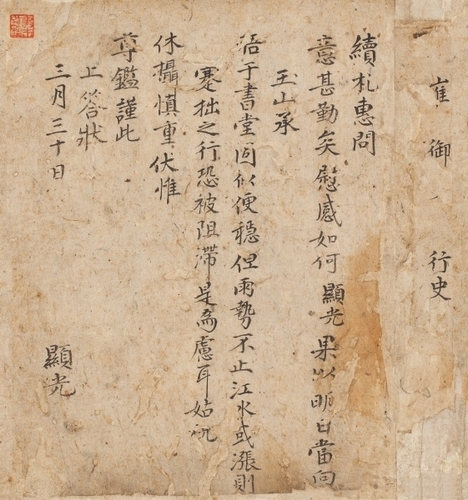 崔御 行史
續札惠問
意甚勤矣慰感如何 顯光果以明日當向
玉山承
晤于書堂固似便穩但雨勢不止江水或漲則
蹇拙之行恐被阻滯是為慮耳姑祝
休攝慎重伏惟
尊鑑謹此
上答狀
三月三十日
顯光